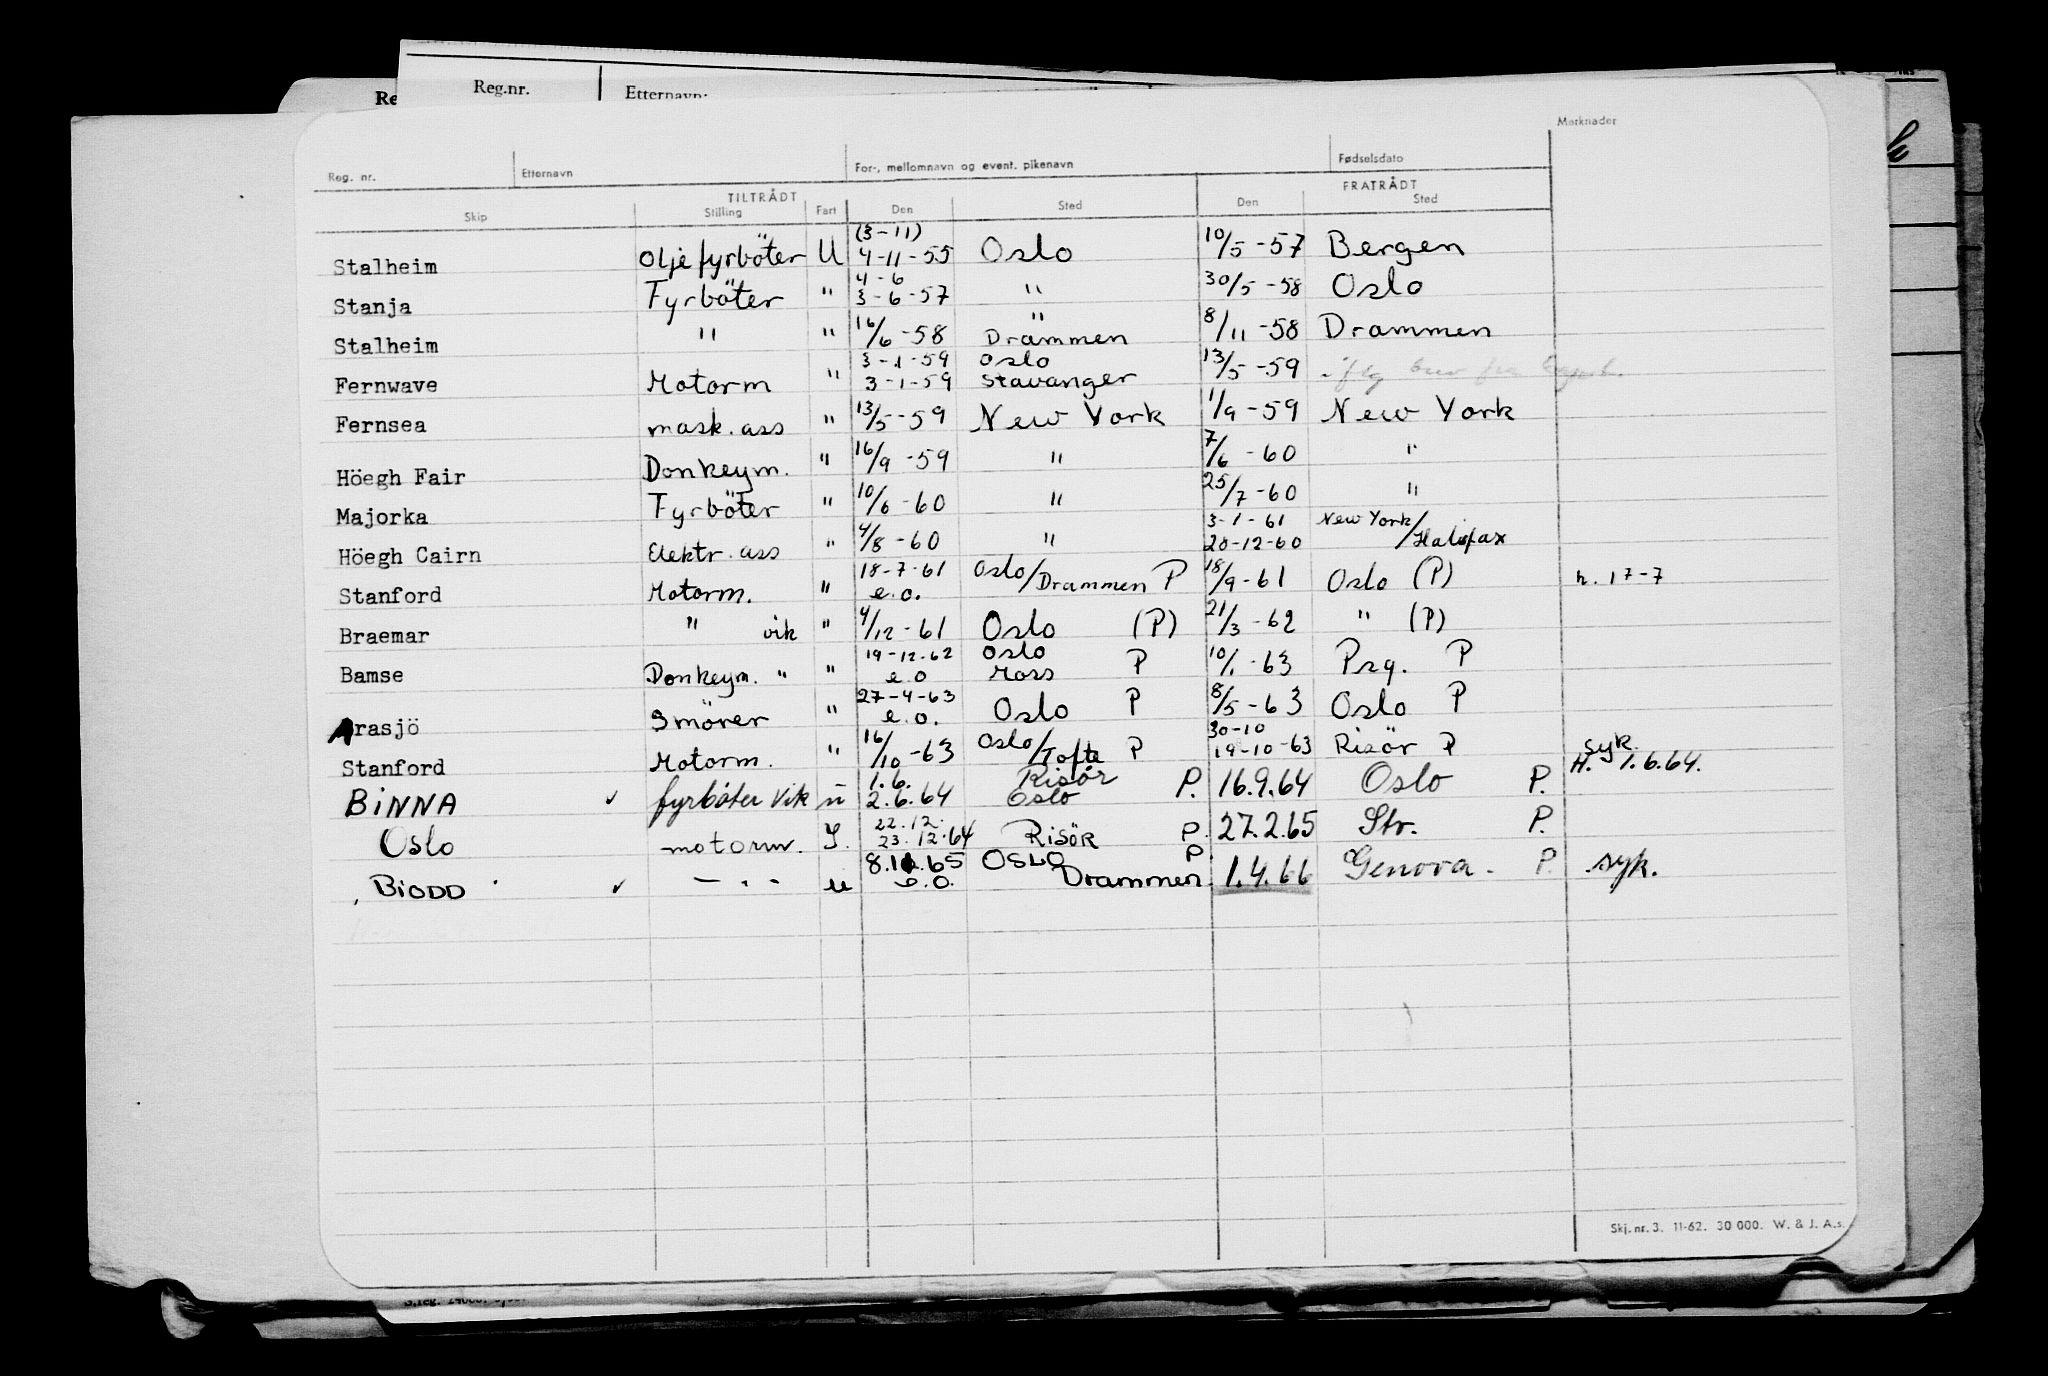 Reg.nr. Etternavn:
Merknader
Reg. nr. Etternavn For-, mellomnavn og event. pikenavn Fødselsdato
TILTRÅDT FRATRÅDT
Skip Stilling Fart Den Sted Den Sted
(3-11)
Stalheim Oljefyrböter U 4-11-55 Oslo 10/5-57 Bergen
4-6
Stanja Fyrböter " 3-6-57 " 30/5-58 Oslo
"
Stalheim " " 16/6-58 Drammen 8/11-58 Drammen
3-1-59 Oslo
Fernwave Motorm " 3-1-59 Stavanger 13/5-59 iflg brev fra
Fernsea mask.ass " 13/5-59 New York 1/9-59 New York
Höegh Fair Donkeym. " 16/9-59 " 7/6-60 "
Majorka Fyrböter " 10/6-60 " 25/7-60 "
3-1-61 New York/
Höegh Cairn Elektr.ass " 4/8-60 " 20-12-60 Halifax
18-7-61 Oslo/
Stanford Motorm. " e.o. Drammen P 18/9-61 Oslo (P) h. 17-7
Braemar " vik " 4/12-61 Oslo (P) 21/3-62 " (P)
19-12-62 Oslo
Bamse Donkeym. " " e.o Moss P 10/1-63 Psg. P
27-4-63
Arasjö Smörer " e.o. Oslo P 8/5-63 Oslo P
30-10
Stanford Motorm. " 16/10-63 Oslo/Tofte P 19-10-63 Risör P syk.
1.6. Risör H. 1.6.64.
BINNA ✓ fyrböter vik u 2.6.64 Oslo P. 16.9.64 Oslo P.
22.12.
Oslo motorm. I. 23.12.64 Risör P. 27.2.65 Str. P.
8.11.65 OSLO P
BIODD ✓ - " - u e.o. Drammen 1.4.66 Genova. P. syk.
Skj. nr. 3. 11-62. 30 000. W. & J. A.s.